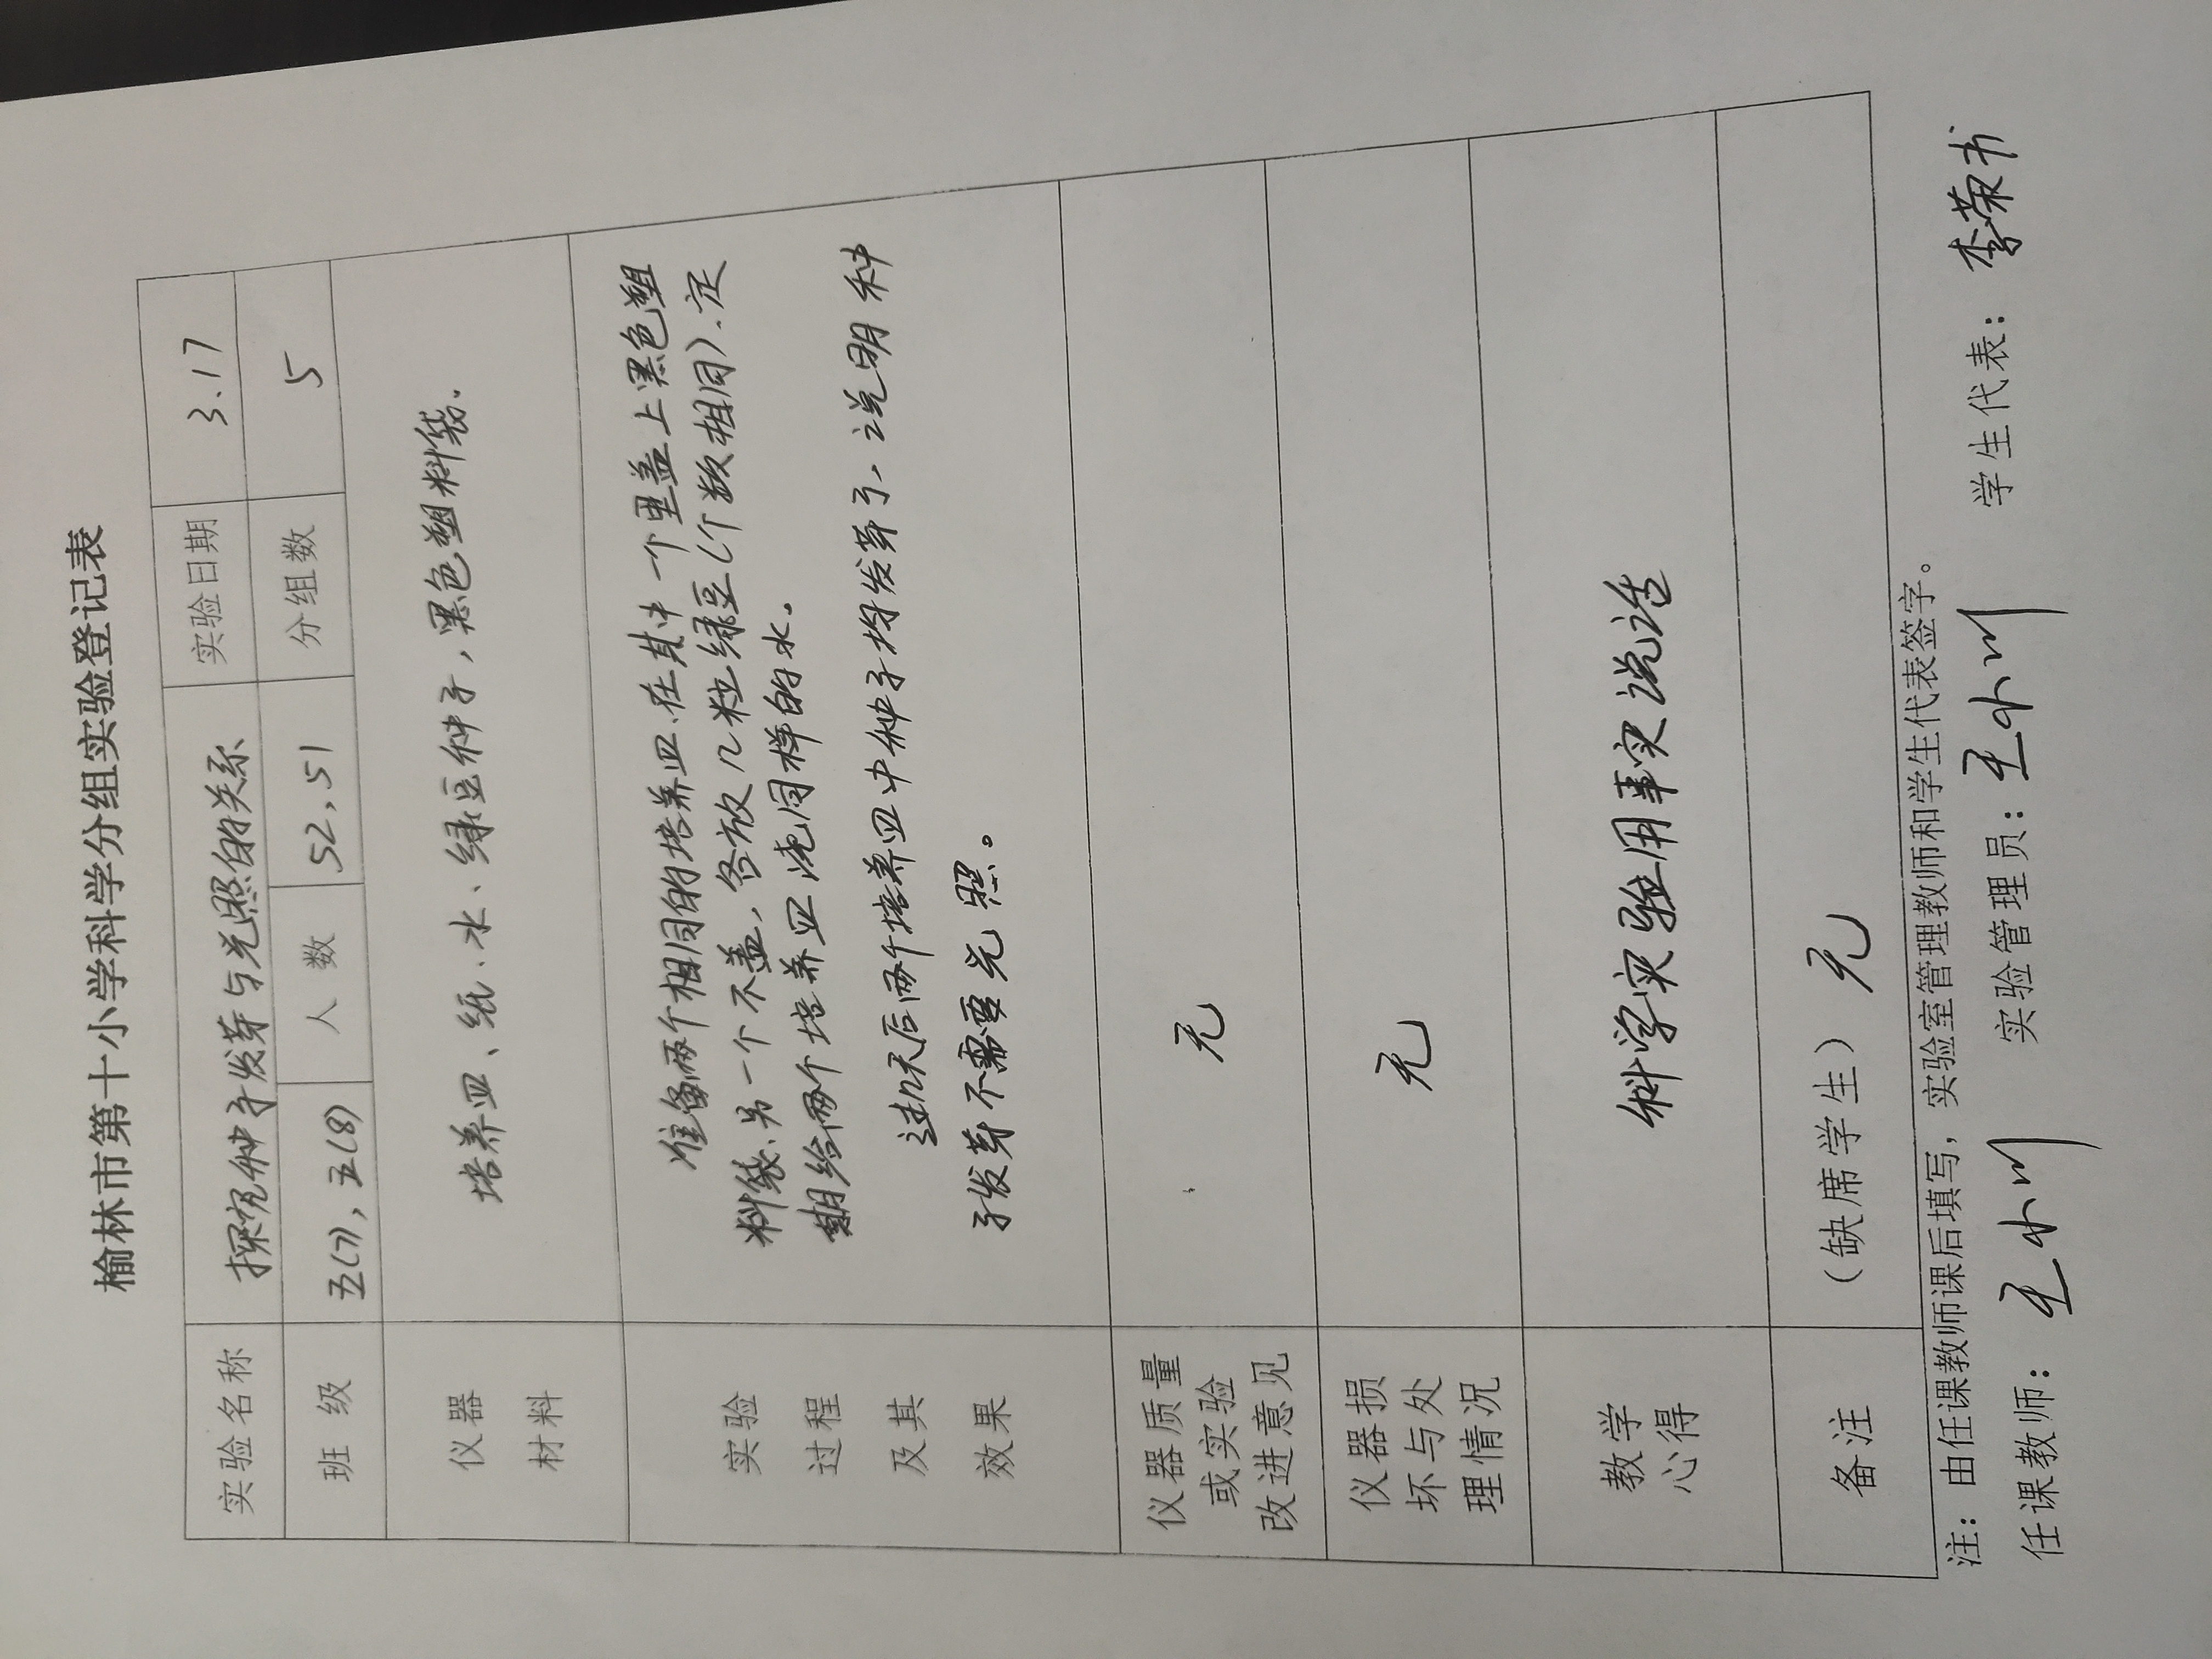 榆林市第十小学科学分组实验登记表
实验名称 探究种子发芽与光照的关系 实验日期 3.17
班级 五(7),五(8) 人数 52,51 分组数 5
仪器
材料
培养皿、纸、水、绿豆种子,黑色塑料袋.
实验
过程
及其
效果
准备两个相同的培养皿.在其中一个里盖上黑色塑
料袋.另一个不盖,各放几粒绿豆(个数相同).定
期给两个培养皿浇同样的水。
过几天后两个培养皿中种子均发芽了、说明种
子发芽不需要光照。
仪器质量
或实验
改进意见
无
仪器损
坏与处
理情况
无
教学
心得
科学实验用事实说话
备注 (缺席学生) 无
注:由任课教师课后填写,实验室管理教师和学生代表签字。
任课教师: 王小川 实验管理员: 王小川 学生代表: 李荣书